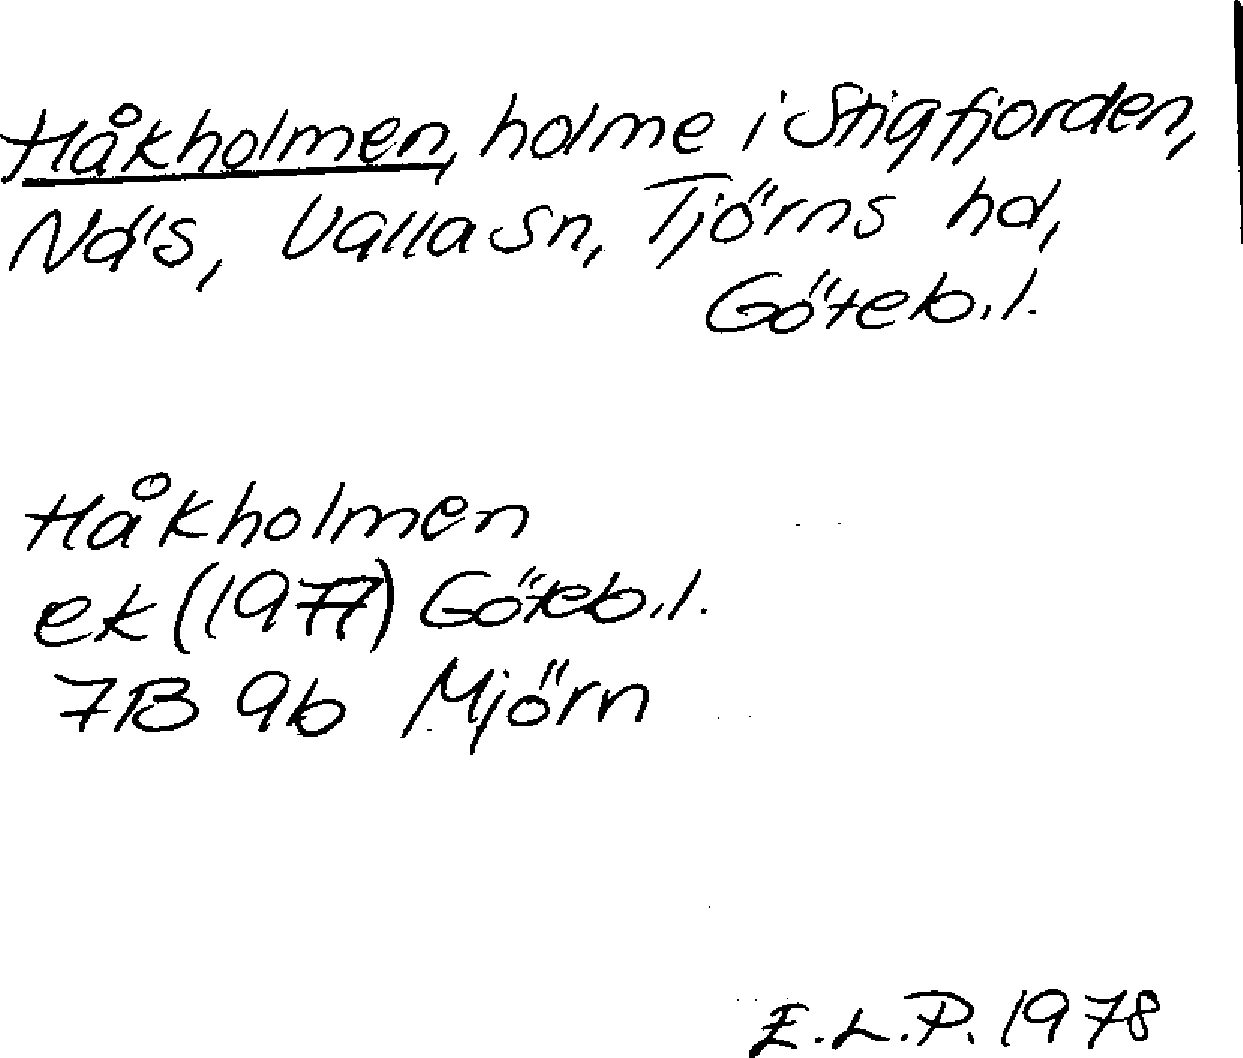 Håkholmen, holme i Stigfjorden,
Näs, Valla sn, Tjörns hd,
Göteb.l.
Håkholmen
ek (1977) Göteb.l.
7B 9b Mjörn
E.L.P. 1978